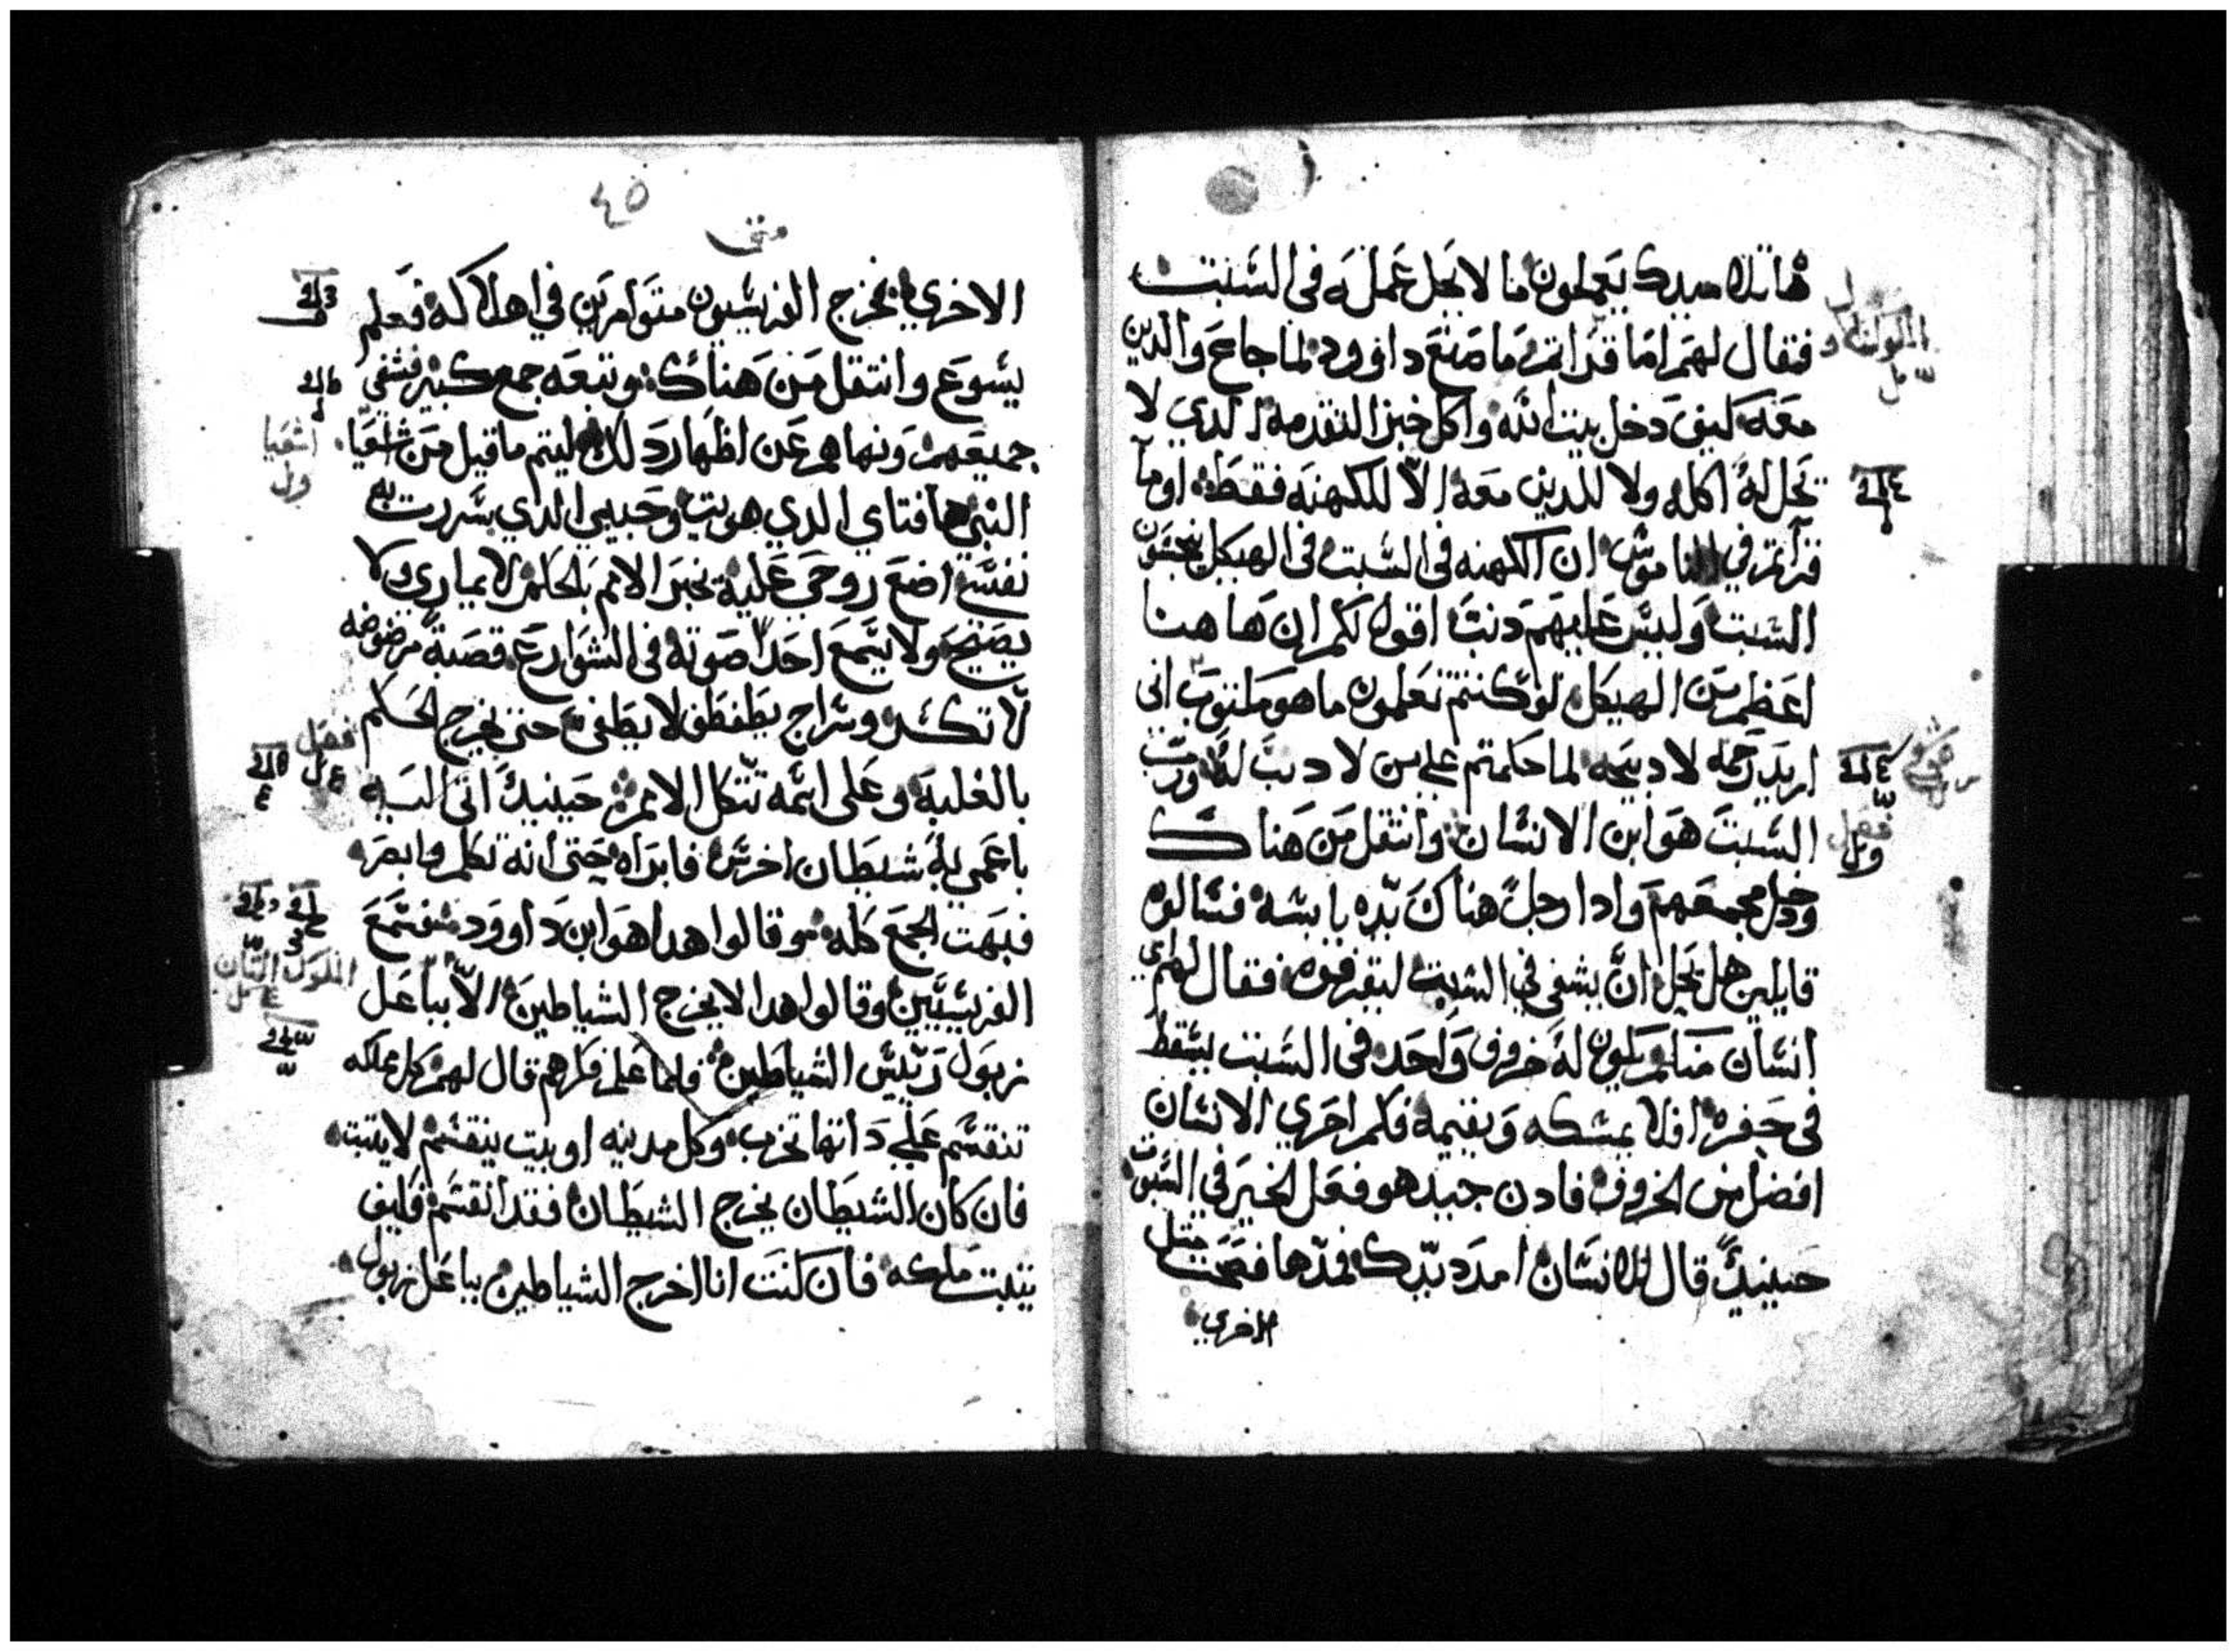 هاتلاميدك يعملون ما لا يحل عمله في السبت
فقال لهم اما قراتم ما صنع داوود لما جاع والدين
معه كيف دخل بيت الله واكل خبز التقدمه الدي لا
تحل له اكله ولا للدين معه الا للكهنه فقط اوما
قراتم في الناموس ان الكهنه في السبت في الهيكل ينجسون
السبت وليس عليهم دنب اقول لكم ان هاهنا
اعظم من الهيكل لو كنتم تعلمون ما هو مكتوب اني
اريد رحمه لا دبيحه لما حكمتم علي من لا دنب له ورب
السبت هو ابن الانسان وانتقل من هناك
ودخل مجمعهم وادا رجل هناك يده يابسه فسالوه
قايلين هل يحل ان يشفي في السبت ليقرفوه فقال لهم اي
انسان منكم يكون له خروف واحد في السبت يسقط
في حفره افلا يمسكه ويقيمه فكم احري الانسان
افضل من الخروف فادن جيد هو فعل الخير في السبوت
حينيد قال للانسان امدد يدك فمدها فصحت مثل
الاخري
٤٥
متى
الاخري فخرج الفريسيون متوامرين في اهلاكه فعلم
يسوع وانتقل من هناك وتبعه جمع كبير فشفي
جميعهم ونهاهم عن اظهار دلك ليتم ما قيل من شعيا
اشعيا
النبي ها فتاي الدي هويت وحبيبي الدي سررت به
نفسي اضع روحي عليه يخبر الامم بالحكم لا يماري ولا
يصيح ولا يسمع احدا صوته في الشوارع قصبة مرضوضه
لا تكسر وسراج يطفطف لا يطفي حتي يخرج الحكم
فصل
بالغلبه وعلى اسمه تتكل الامم حينيد اتى اليه
باعمي به شيطان اخرس فابراه حتى انه تكلم وابصر
فبهت الجمع كله وقالوا هدا هو ابن داوود فسمع
الفريسيين وقالوا هدا لا يخرج الشياطين الا بباعل
زبول رييس الشياطين فلما علم فكرهم قال لهم كل مملكه
تنقسم علي داتها تخرب وكل مدينه او بيت ينقسم لا يثبت
فان كان الشيطان يخرج الشيطان فقد انقسم فكيف
تثبت ملكه فان كنت انا اخرج الشياطين بباعل زبول